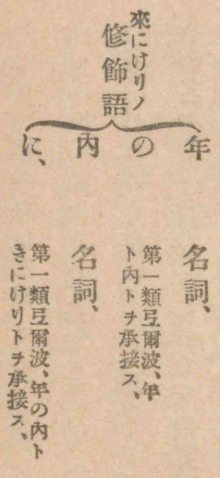 來にけりノ
修飾語
年の内に、
名詞、
第一類弖爾波、年
ト内トヲ承接ス、
名詞、
第一類弖爾波、年の内ト
きにけりトヲ承接ス、